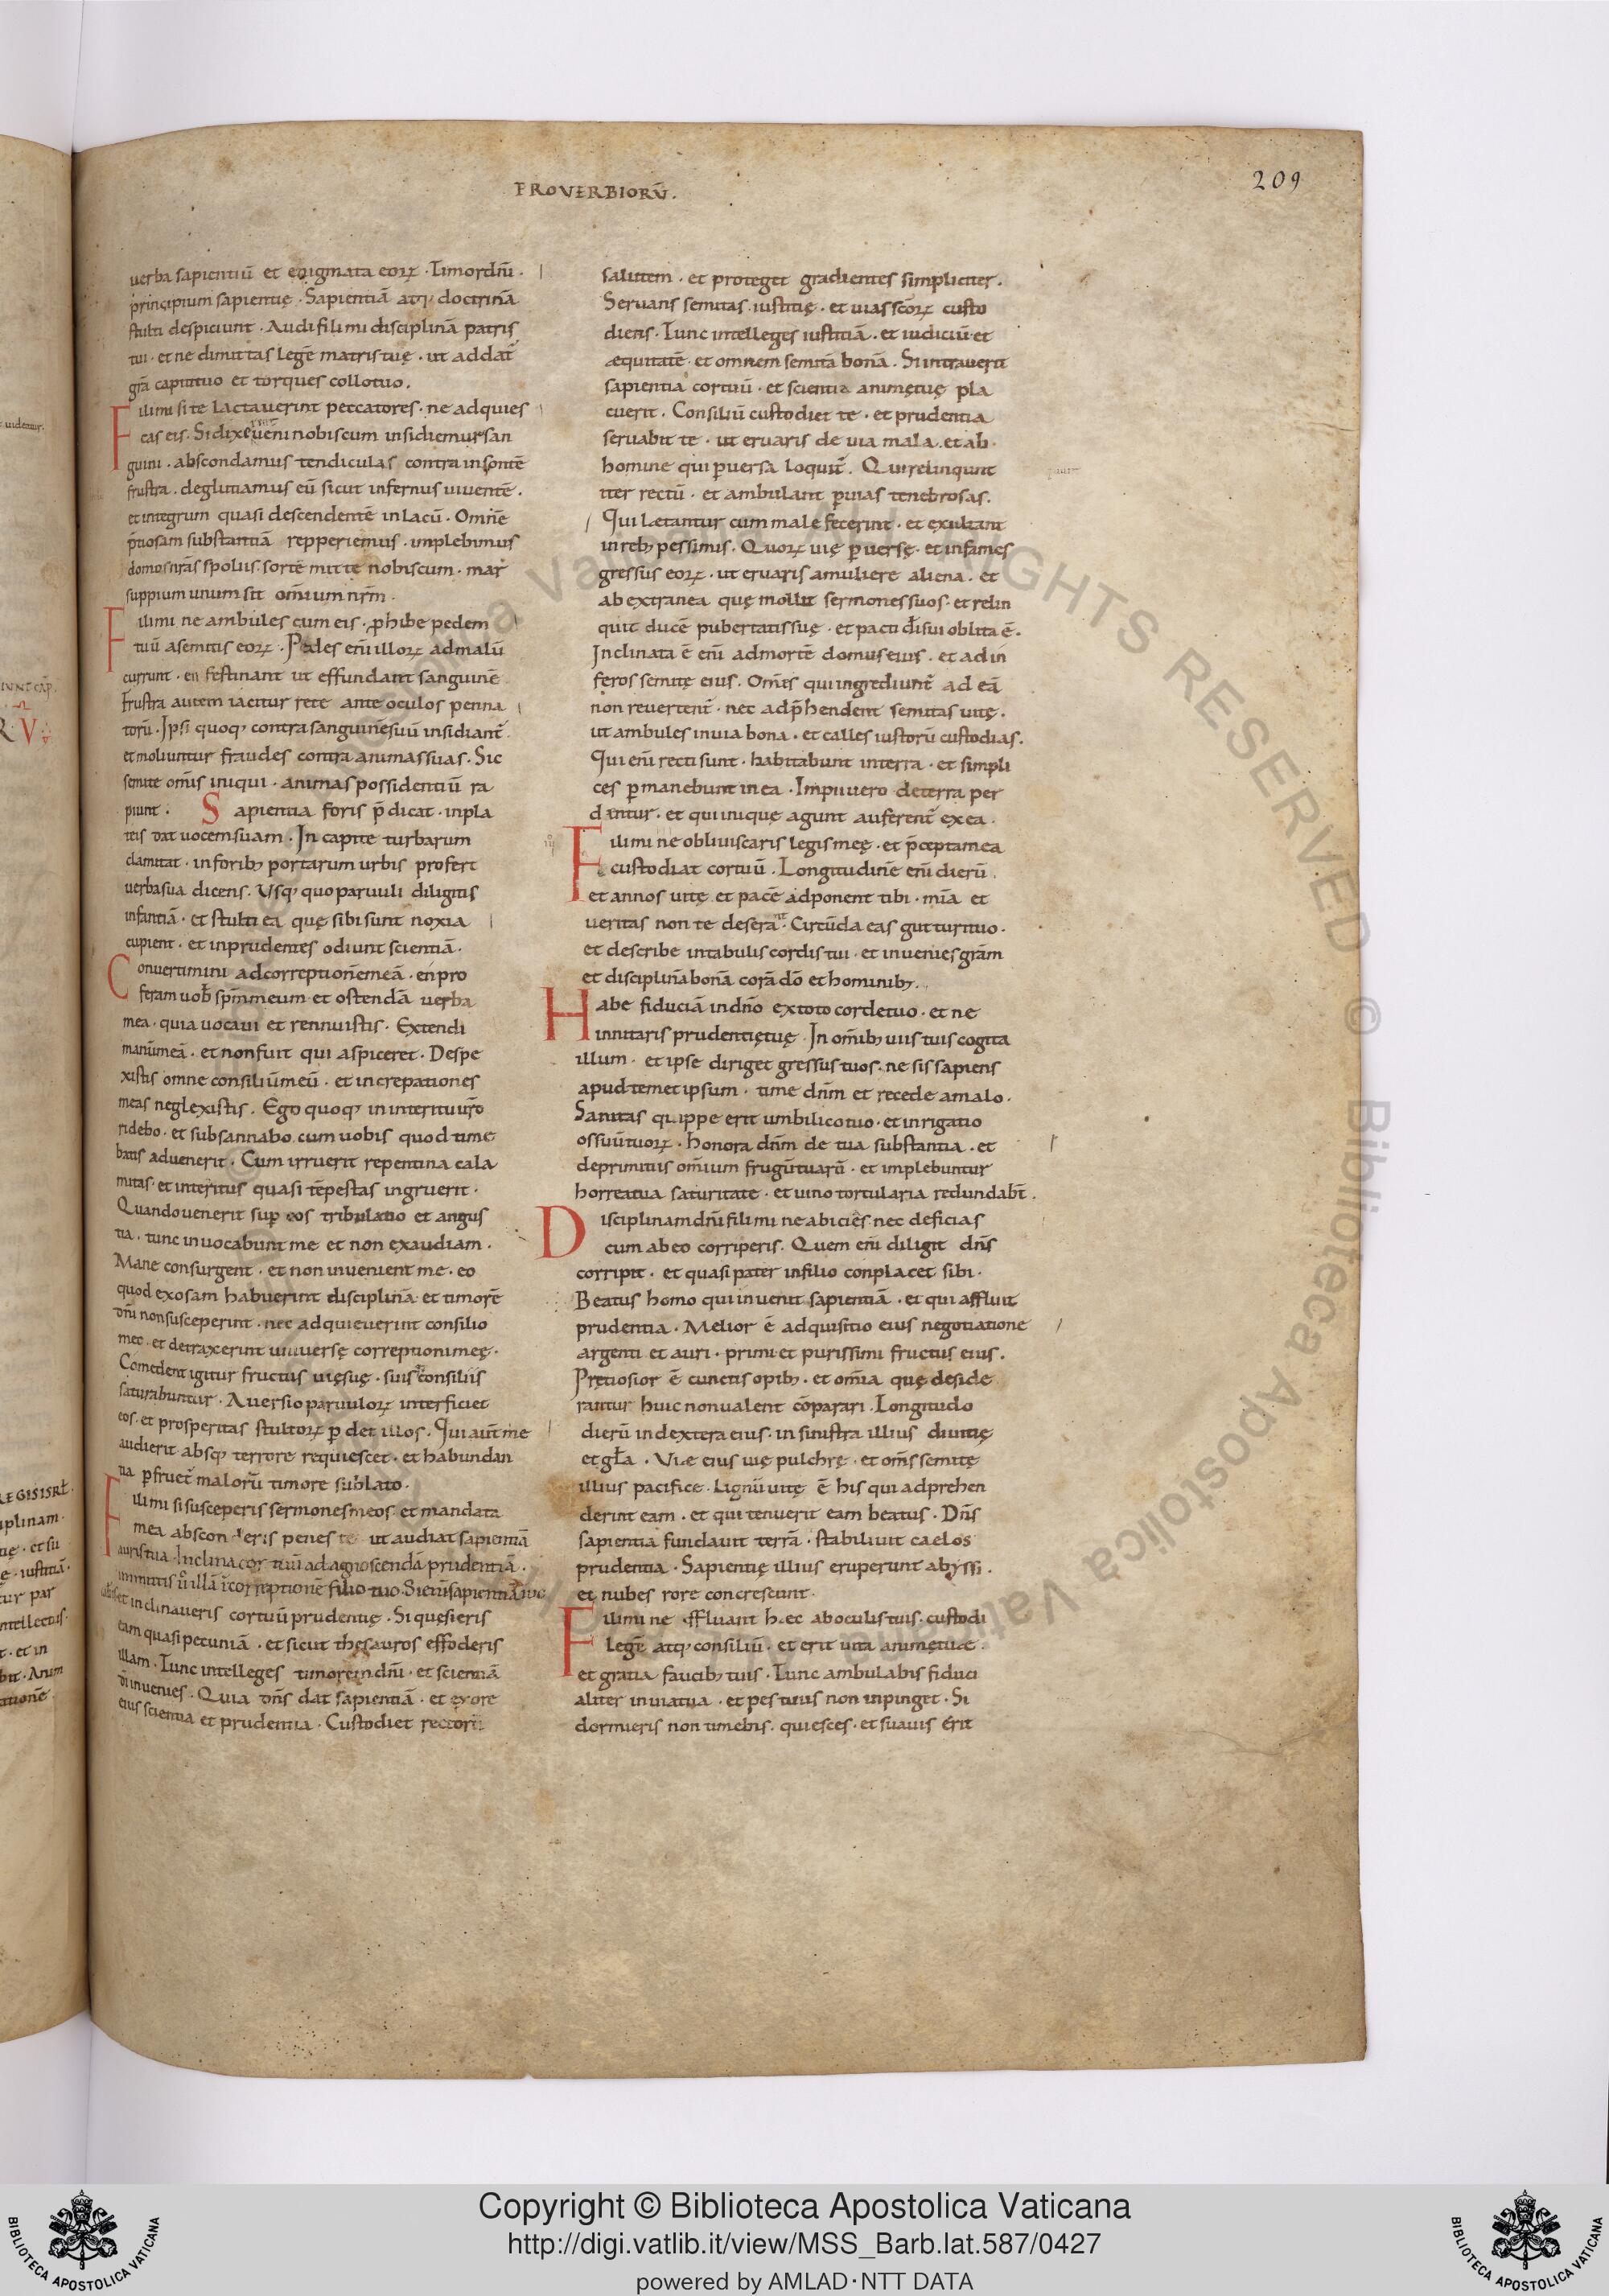 PROVERBIORŪ.
209
uerba sapientiū et enigmata eoꝝ · Timor dn̄i ·
principium sapientię · Sapientiā atq; doctrinā
stulti despiciunt · Audi fili mi disciplinā patris
tui · et ne dimittas legē matris tuę · ut addat̄
gr̄a capiti tuo et torques collo tuo.
Fili mi si te lactauerint peccatores · ne adquies
cas eis · Si dixerint ueni nobiscum insidiemur san
guini · abscondamus tendiculas contra insontē
frustra · deglutiamus eū sicut infernus uiuentē ·
et integrum quasi descendentē in lacū · Omnē
p̄tiosam substantiā repperiemus · implebimus
domos nr̄as spoliis · sortē mitte nobiscum · mar
suppium unum sit om̄ium nr̄m ·
Fili mi ne ambules cum eis · ꝓhibe pedem
tuū a semitis eoꝝ · Pedes eni illoꝝ ad malū
currunt · en festinant ut effundant sanguinē
frustra autem iacitur rete ante oculos penna
torū · Ipsi quoq; contra sanguinē suū insidiant̄
et moliuntur fraudes contra animas suas · Sic
semite om̄is iniqui · animas possidentiū ra
piunt · Sapientia foris p̄dicat · in pla
teis dat uocem suam · In capite turbarum
clamitat · in forib; portarum urbis profert
uerba sua dicens · Vsq; quo paruuli diligitis
infantiā · et stulti ea quę sibi sunt noxia
cupient · et inprudentes odiunt scientiā ·
Conuertimini ad correptionē meā · en pro
feram uob̄ spm̄ meum et ostendā uerba
mea · quia uocaui et rennuistis · Extendi
manū meā · et non fuit qui aspiceret · Despe
xistis omne consiliū meū · et increpationes
meas neglexistis · Ego quoq; in interitu uro
ridebo · et subsannabo cum uobis quod time
batis aduenerit · Cum irruerit repentina cala
mitas · et interitus quasi tēpestas ingruerit ·
Quando uenerit sup eos tribulatio et angus
tia · tunc inuocabunt me et non exaudiam ·
Mane consurgent · et non inuenient me · eo
quod exosam habuerint disciplinā et timorē
dn̄i non susceperint · nec adquieuerint consilio
meo · et detraxerint uniuersę correptioni meę ·
Comedent igitur fructus uię suę · suisq; consiliis
saturabuntur · Auersio paruuloꝝ interficiet
eos · et prosperitas stultoꝝ ꝑdet illos · Qui aut̄ me
audierit · absq; terrore requiescet · et habundan
tia ꝑfruet̄ maloꝝ timore sublato ·
Fili mi si susceperis sermones meos et mandata
mea absconderis penes te ut audiat sapientiā
auris tua · Inclina cor tuū ad agnoscendā prudentiā ·
et inclinaueris cor tuū prudentię · Si quęsieris
eam quasi pecuniā · et sicut thesauros effoderis
illam · Tunc intelleges timorem dn̄i · et scientiā
di inuenies · Quia dn̄s dat sapientiā · et ex ore
eius scientia et prudentia · Custodiet rectorū
salutem · et proteget gradientes simpliciter ·
Seruans semitas iustitię · et uias scōꝝ custo
diens · Tunc intelleges iustitiā · et iudiciū et
æquitatē · et omnem semitā bonā · Si intrauerit
sapientia cor tuū · et scientia animę tuę pla
cuerit · Consiliū custodiet te · et prudentia
seruabit te · ut eruaris de uia mala · et ab ·
homine qui ꝑuersa loquit̄ · Qui relinqunt
iter rectū · et ambulant ꝑ uias tenebrosas.
Qui lætantur cum male fecerint · et exultant
in reb; pessimis · Quoꝝ uię ꝑuersę · et infames
gressus eoꝝ · ut eruaris a muliere aliena · et
ab extranea quę mollit sermones suos · et relin
quit ducē pubertatis suę · et pacti di sui oblita ē ·
Inclinata ē eni ad mortē domus eius · et ad in
feros semitę eius · Om̄s qui ingrediunt̄ ad eā
non reuertent̄ · nec adp̄hendent semitas uitę ·
ut ambules in uia bona · et calles iustorū custodias ·
Qui eni recti sunt · habitabunt in terra · et simpli
ces ꝑmanebunt in ea · Impii uero de terra per
dantur · et qui inique agunt auferent̄ ex ea ·
Fili mi ne obliuiscaris legis meę · et p̄cepta mea
custodiat cor tuū · Longitudinē eni dierū
et annos uitę et pacē adponent tibi · mīa et
ueritas non te deserant · Circūda eas gutturi tuo ·
et describe in tabulis cordis tui · et inuenies gr̄am
et disciplinā bonā corā dō et hominib; ·
Habe fiduciā in dn̄o ex toto corde tuo · et ne
innitaris prudentię tuę · In om̄ib; uiis tuis cogita
illum · et ipse diriget gressus tuos · ne sis sapiens
apud temet ipsum · time dn̄m et recede a malo ·
Sanitas quippe erit umbilico tuo · et inrigatio
ossuū tuoꝝ · honora dn̄m de tua substantia · et
de primitiis om̄ium frugū tuarū · et implebuntur
horrea tua saturitate · et uino torcularia redundabt̄ ·
Disciplinam dn̄i fili mi ne abicies · nec deficias
cum ab eo corriperis · Quem eni diligit dn̄s
corripit · et quasi pater in filio conplacet sibi ·
Beatus homo qui inuenit sapientiā · et qui affluit
prudentia · Melior ē adquisitio eius negotiatione
argenti et auri · primi et purissimi fructus eius ·
Pretiosior ē cunctis opib; · et om̄ia quę deside
rantur huic non ualent cōparari · Longitudo
dierū in dextera eius · in sinistra illius diuitię
et gła · Viæ eius uię pulchrę · et om̄s semitę
illius pacifice · Lignū uitę ē his qui adprehen
derint eam · et qui tenuerit eam beatus · Dn̄s
sapientia fundauit terrā · stabiliuit caelos
prudentia · Sapientię illius eruperunt abyssi ·
et nubes rore concrescunt ·
Fili mi ne effluant hæc ab oculis tuis · custodi
legē atq; consiliū · et erit uita animę tuæ ·
et gratia faucib; tuis · Tunc ambulabis fiduci
aliter in uia tua · et pes tuus non inpinget · Si
dormieris non timebis · quiesces · et suauis erit
Copyright © Biblioteca Apostolica Vaticana
http://digi.vatlib.it/view/MSS_Barb.lat.587/0427
powered by AMLAD·NTT DATA
BIBLIOTECA APOSTOLICA VATICANA
BIBLIOTECA APOSTOLICA VATICANA